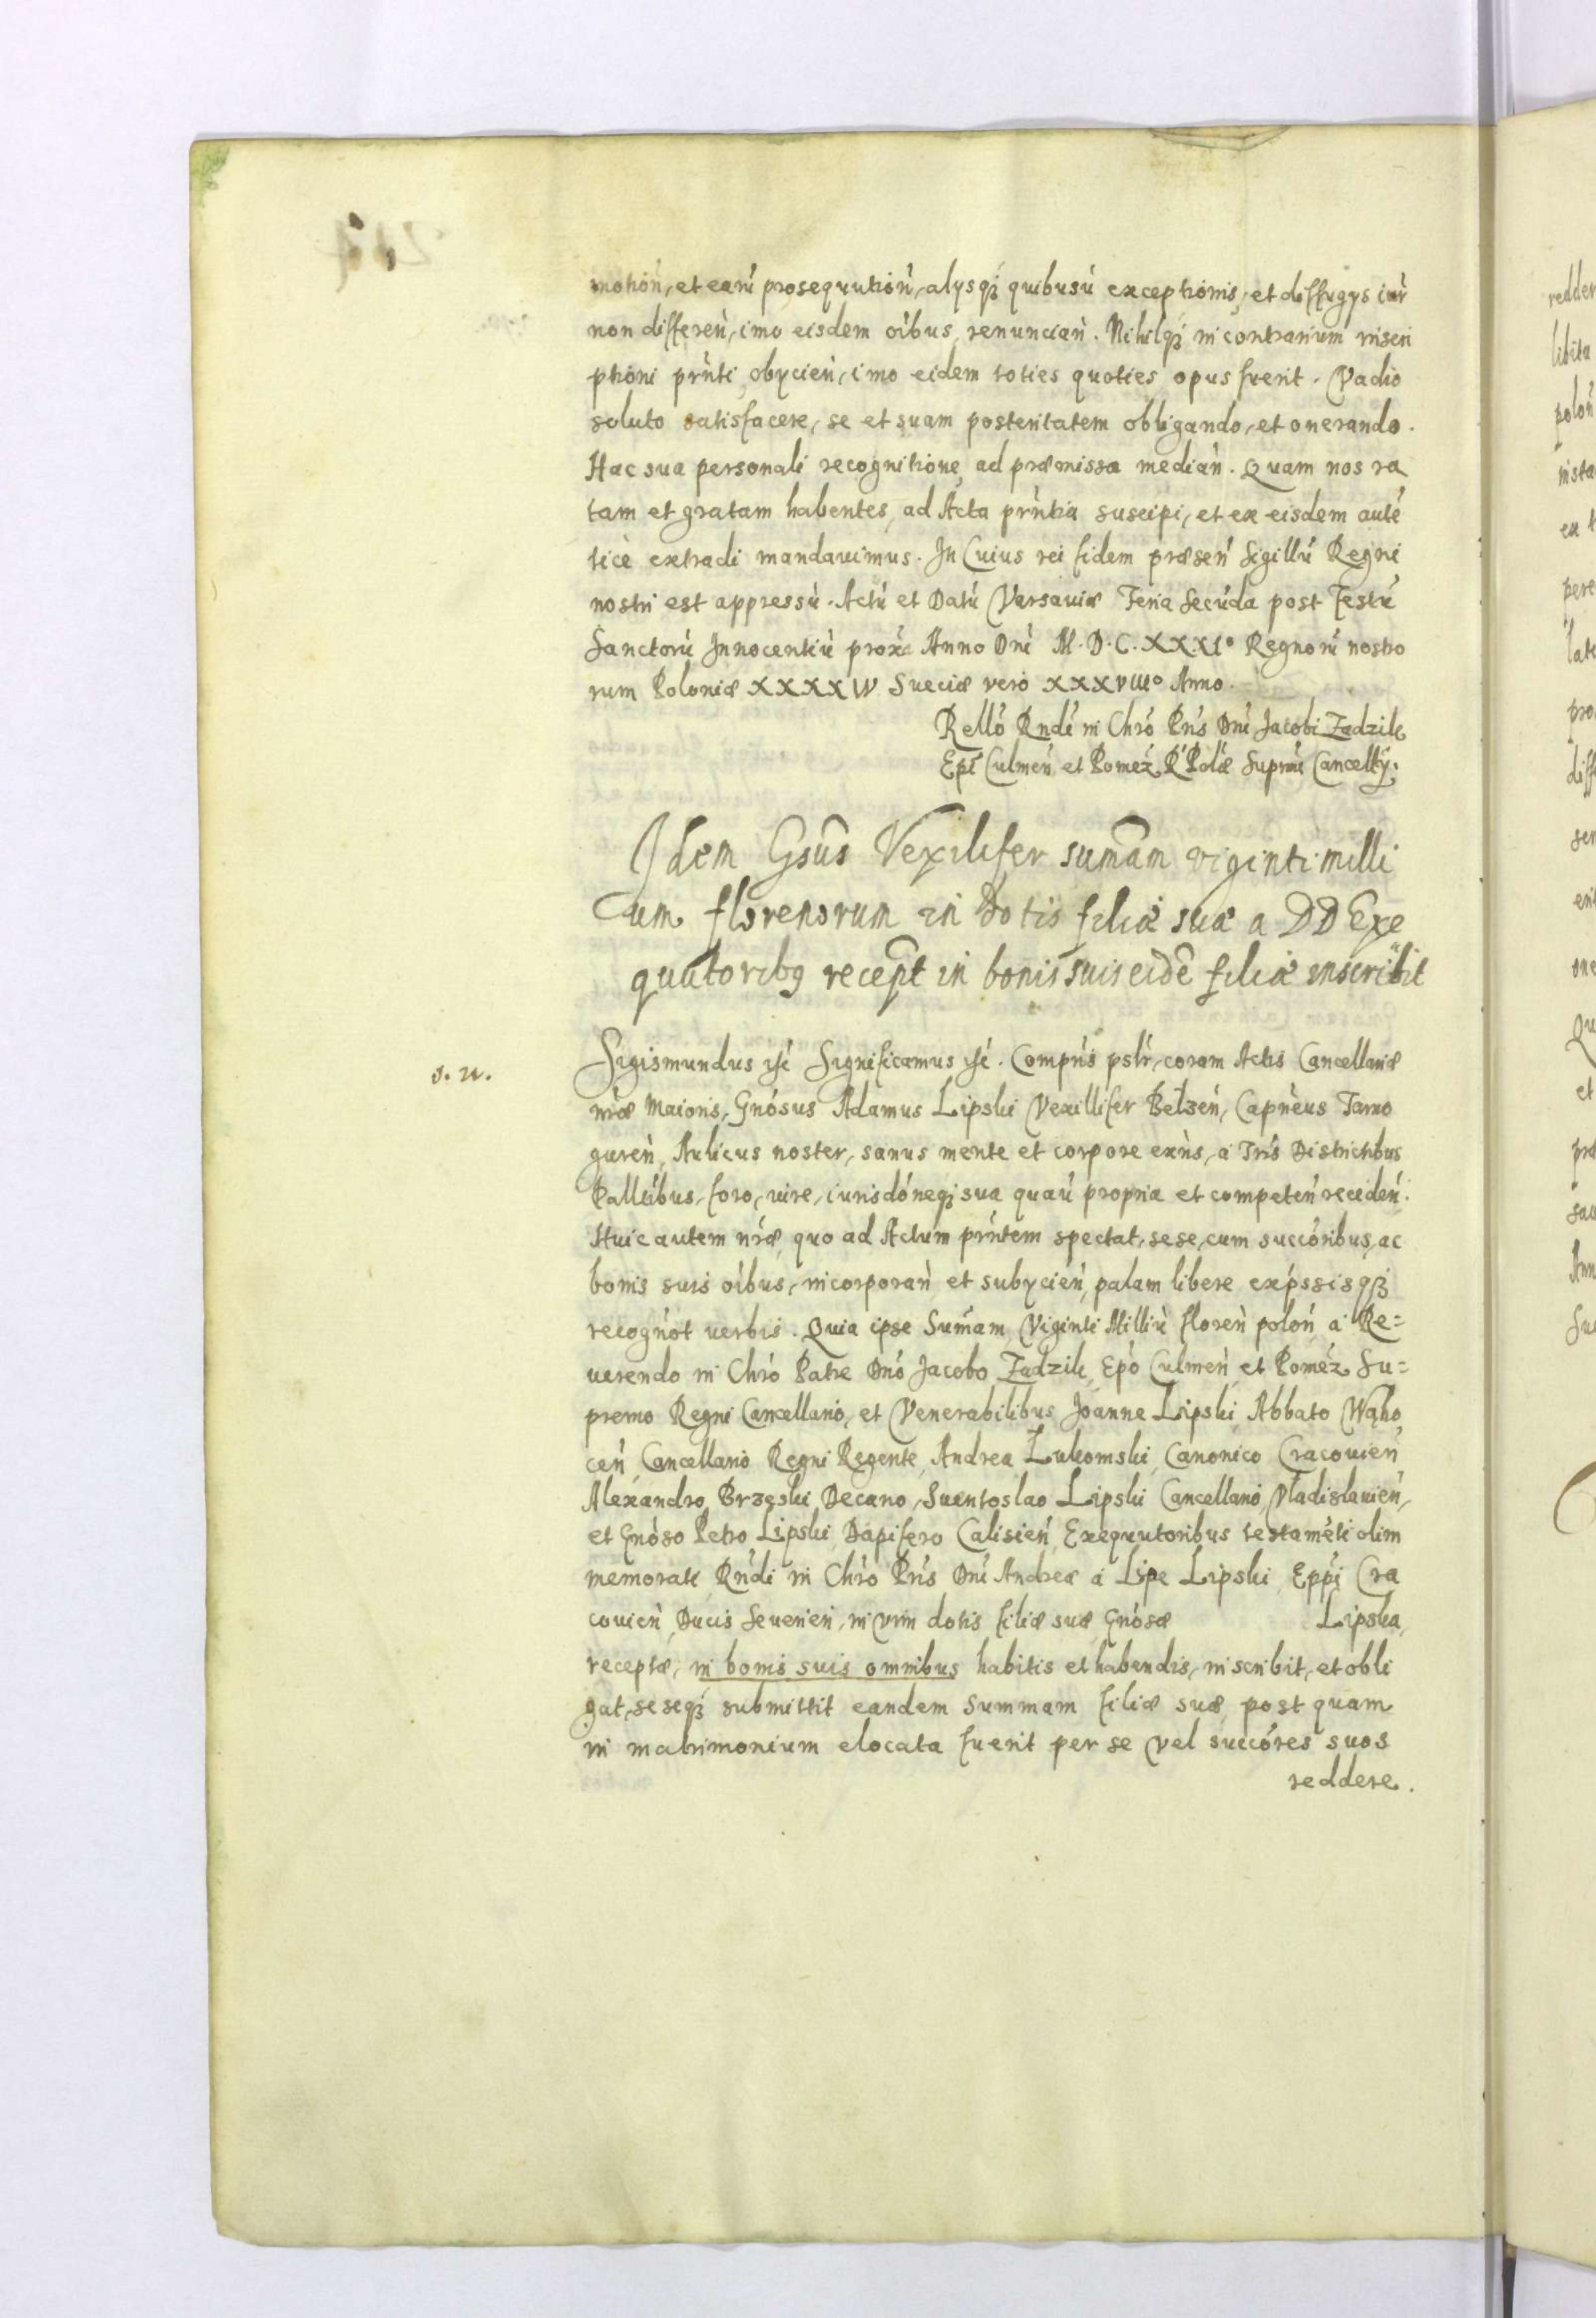 motioń, et earú prosequutioń, alysqȝ quibusú exceptioniś, et diffugys iur̃
non differeń, imo eisdem oíbus, renunciań. Nihilqȝ in contrarium inscri
ptióni prńti obycień, imo eidem toties quoties opus fuerit. Vadio
soluto satisfacere, se et suam posteritatem obligando, et onerando.
Hac sua personali recognitione, ad præmissa mediań. Quam nos ra
tam et gratam habentes, ad Acta prńtia suscipi, et ex eisdem auté
ticè extradi mandauimus. In Cuius rei fidem præseń Sigillú Regni
nostri est appressú. Actú et Datú Varsauiæ Feria Secúda post Festú
Sanctorú Innocentiú prox̃a Anno Dńi M.D.C.XXXI° Regnorú nostro
rum Poloniæ XXXXIV Sueciæ vero XXXVIII° Anno.
Relló Rndí in Chró Pris Dńi Jacobi Zadzik
Epí Culmeń et Pomeź. R Polæ Supmí Cancellÿ.
Idem Gsus Vexilifer sumam viginti milli
um florenorum in Dotis filiæ suæ a DD Exe
quutoribꝰ recept in bonis suis eidē filiæ inscribit
s. n.
Sigismundus ꝛc̃ Significamus ꝛc̃. Comprńs pslr̃, coram Actis Cancellariæ
nr̃æ Maioris, Gnósus Adamus Lipski Vexillifer Belzeń, Capńeus Tarno
gureń, Aulicus noster, sanus mente et corpore exńs, a Trís Districtibus
Pallıb́us, foro, iure, iurisdóneqȝ sua quaú propria et competeń recedeń.
Huic autem nr̃æ, quo ad Actum prńtem spectat, sese, cum succóribus, ac
bonis suis oíbus, incorporań et subycień, palam libere expŕssisqȝ
recogńot uerbis. Quia ipse Summam Viginti Milliú floreń poloń, a Re=
uerendo in Chró Patre Dnó Jacobo Zadzik, Epó Culmeń et Poméz. Su=
premo Regni Cancellario, et Venerabilibus Joanne Lipski Abbato Wąho
ceń Cancellario Regni Regente, Andrea Lukomski, Canonico Cracouień
Alexandro Brzeski Decano, Suentoslao Lipski Cancellario Vladislauień,
et Gnóso Petro Lipski, Dapifero Calisień, Exequutoribus testaméti olim
memorati Rńdi in Chró Pris Dńi Andreæ a Lipe Lipski Eppi Cra
couień, Ducis Seuerień, in vim dotis filiæ suæ Gnósæ Lipska,
receptæ, in bonis suis omnibus habitis et habendis, inscribit, et obli
gat, seseqȝ submittit eandem Summam filiæ suæ, post quam
in matrimonium elocata fuerit per se vel succóres suos
reddere.